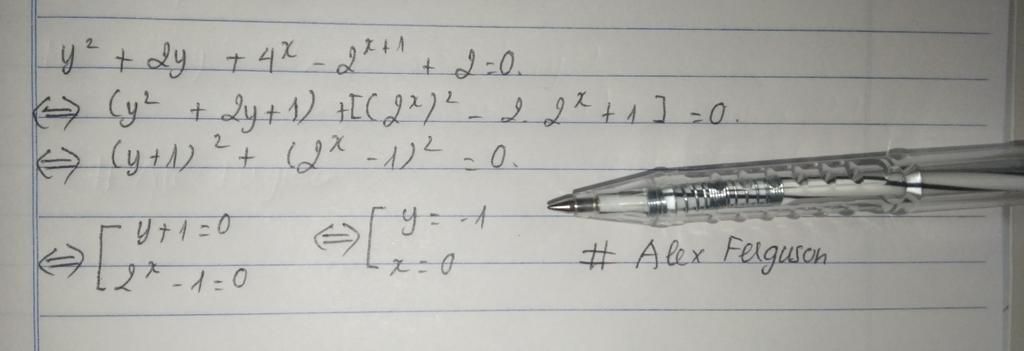 y² + 2y + 4ˣ - 2ˣ⁺¹ + 2 = 0.
⇔ (y² + 2y + 1) + [(2ˣ)² - 2. 2ˣ + 1] = 0.
⇔ (y + 1)² + (2ˣ - 1)² = 0.
⇔ [ y + 1 = 0 ⇔ [ y = -1
2ˣ - 1 = 0 x = 0 # Alex Ferguson